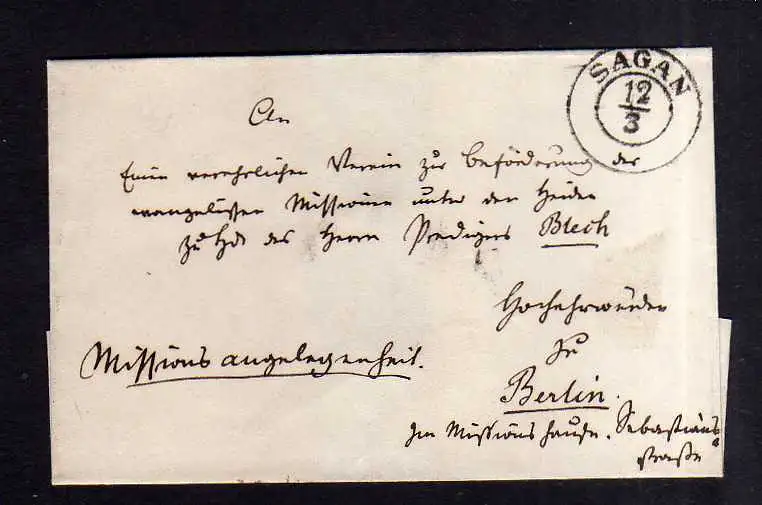 SAGAN
12/3
An
Einen verehrlichen Verein zur Beförderung der
evangelischen Missionen unter den Heiden
zu Hd. des Herrn Predigers Blech
Hochehrwürden
zu
Berlin.
Missionsangelegenheit.
Im Missionshause. Sebastians-
straße